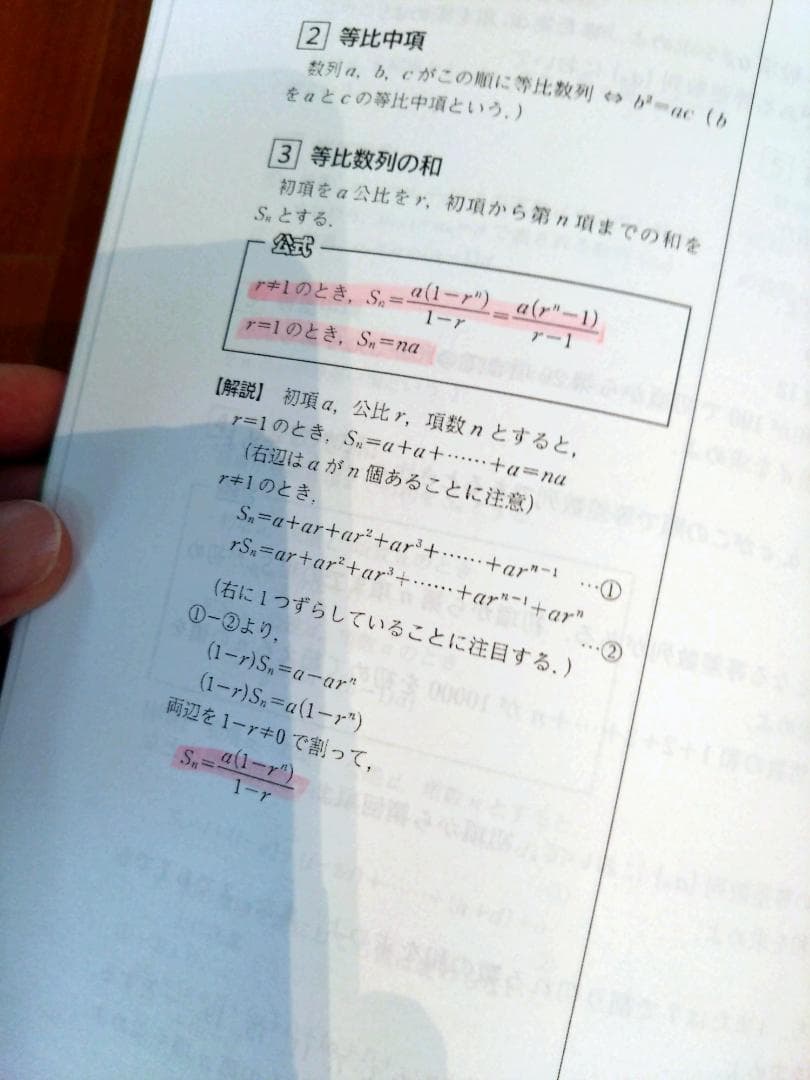 2 等比中項
数列a, b, cがこの順に等比数列 ⇔ b²=ac (b
をaとcの等比中項という.)
3 等比数列の和
初項をa公比をr, 初項から第n項までの和を
Sₙとする.
公式
r≠1のとき, Sₙ=a(1−rⁿ)/1−r=a(rⁿ−1)/r−1
r=1のとき, Sₙ=na
【解説】 初項a, 公比r, 項数nとすると,
r=1のとき, Sₙ=a+a+……+a=na
(右辺はaがn個あることに注意)
r≠1のとき,
Sₙ=a+ar+ar²+ar³+……+arⁿ⁻¹ …①
rSₙ=ar+ar²+ar³+……+arⁿ⁻¹+arⁿ …②
(右に1つずらしていることに注目する.)
①−②より,
(1−r)Sₙ=a−arⁿ
(1−r)Sₙ=a(1−rⁿ)
両辺を1−r≠0で割って,
Sₙ=a(1−rⁿ)/1−r